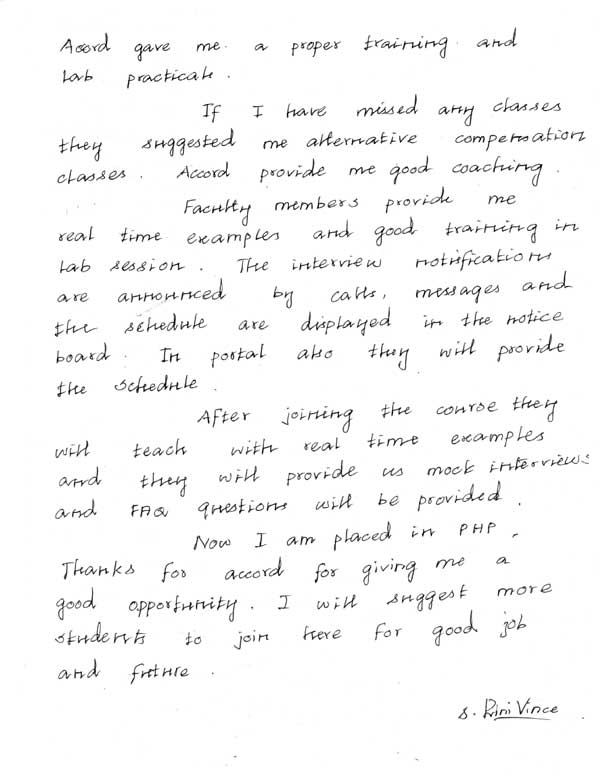 Acord gave me a proper training and
Lab practicals.
If I have missed any classes
they suggested me alternative compensation
classes. Accord provide me good coaching.
Faculty members provide me
real time examples and good training in
Lab session. The interview notifications
are announced by calls, messages and
the schedule are displayed in the notice
board. In portal also they will provide
the schedule.
After joining the course they
will teach with real time examples
and they will provide us mock interviews
and FAQ questions will be provided.
Now I am placed in PHP.
Thanks for accord for giving me a
good opportunity. I will suggest more
students to join here for good job
and future.
S. Rini Vince